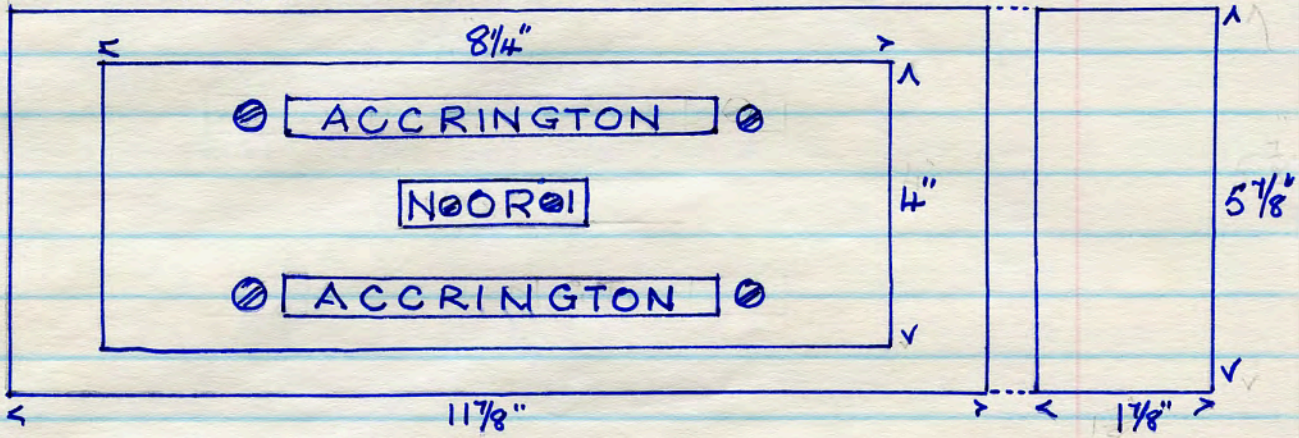 8 1/4"
ACCRINGTON
NORI
4"
5 7/8"
ACCRINGTON
11 7/8"
1 7/8"